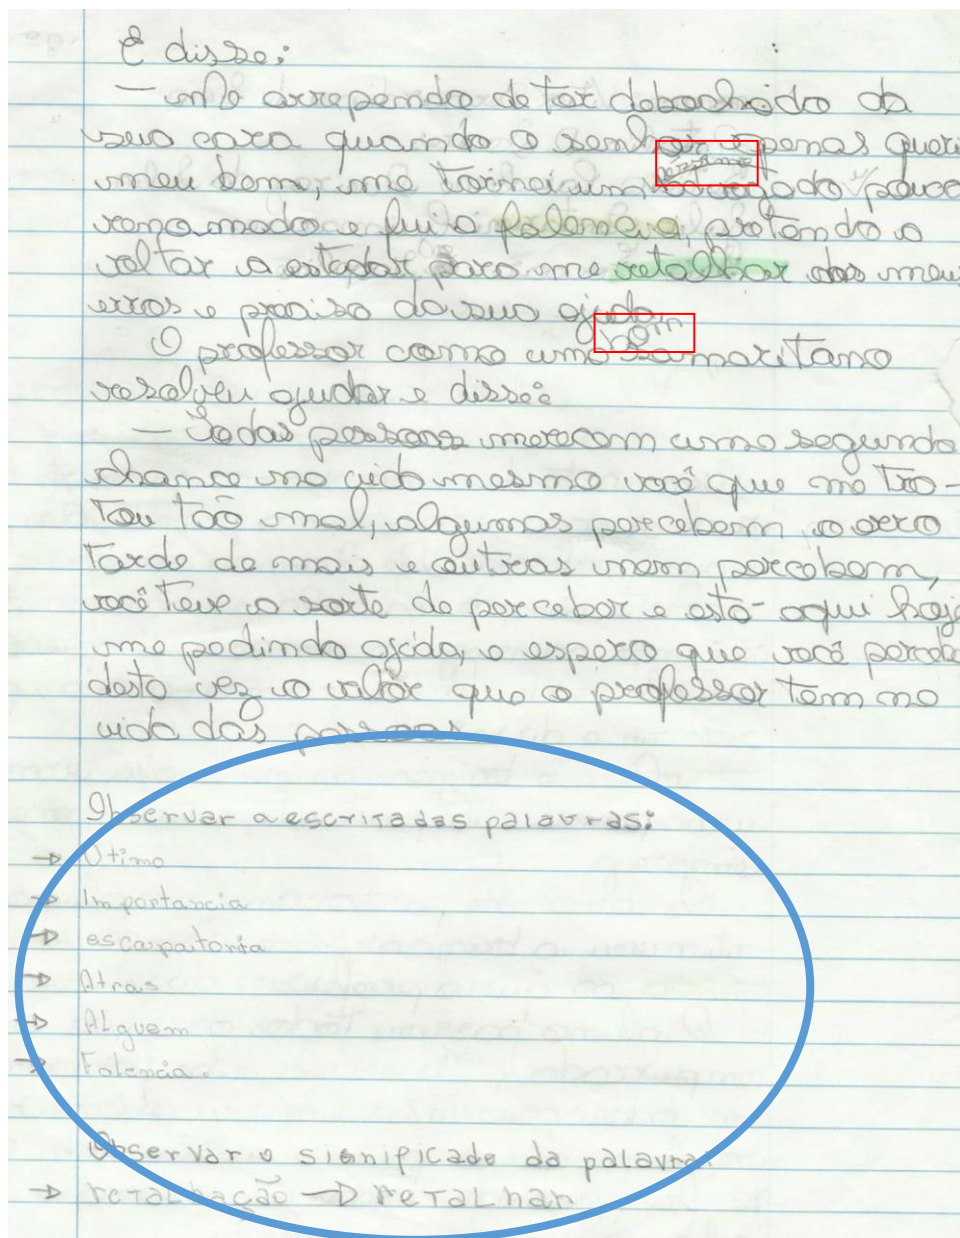 E disse:
— Me arrependo de ter debochado da
sua cara quando o senhor apenas queri
meu bem, me tornei um péssimo advogado, pouco
renomado e fui a falencia, pretendo a
voltar a estudar para me retalhar dos meus
erros e preciso da sua ajuda.
bom
O professor como um samaritano
resolveu ajudar e disse:
— Todas pessoas merecem uma segunda
chance na vida mesmo você que me tra-
tou tão mal, algumas percebem o erro
tarde de mais e outras nem percebem,
você teve a sorte de perceber e está aqui hoje
me pedindo ajida, e espero que você perceba
desta vez o valor que o professor tem na
vida das pessoas
Observar a escrita das palavras:
→ Utimo
→ Importancia
→ escapatoria
→ Atras
→ Alguem
→ Falencia.
Observar o significado da palavra:
→ retalhação → retalhar